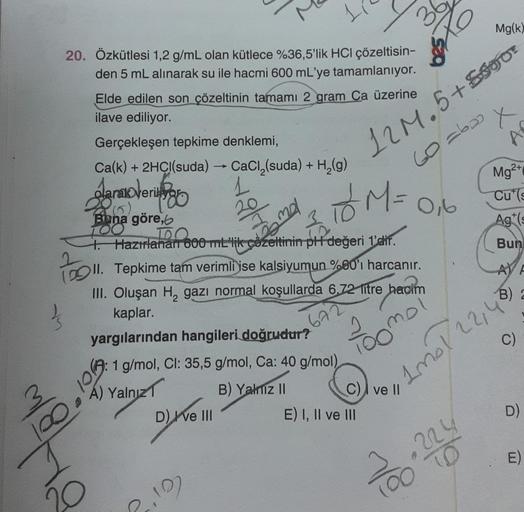 20. Özkütlesi 1,2 g/mL olan kütlece %36,5'lik HCl çözeltisin-
den 5 mL alınarak su ile hacmi 600 mL'ye tamamlanıyor.
Elde edilen son çözeltinin tamamı 2 gram Ca üzerine
ilave ediliyor.
Gerçekleşen tepkime denklemi,
Ca(k) + 2HCl(suda) → CaCl₂(suda) + H₂(g)
olarak veriliyor.
Buna göre,
I. Hazırlanan 600 mL'lik çözeltinin pH değeri 1'dir.
II. Tepkime tam verimli ise kalsiyumun %60'ı harcanır.
III. Oluşan H₂ gazı normal koşullarda 6,72 litre hacim
kaplar.
yargılarından hangileri doğrudur?
(H: 1 g/mol, Cl: 35,5 g/mol, Ca: 40 g/mol)
A) Yalnız I
B) Yalnız II
C) I ve II
D) I ve III
E) I, II ve III
12M.5+
60=600 X
1/10 M= 0,6
3/100 mol
1mol 22,4
672
3/100 . 224/10
3/100 . 10
1/20
Mg(k)
Mg²⁺
Cu⁺(s
Ag⁺(s
Bun
A)
B) 2
C)
D)
E)